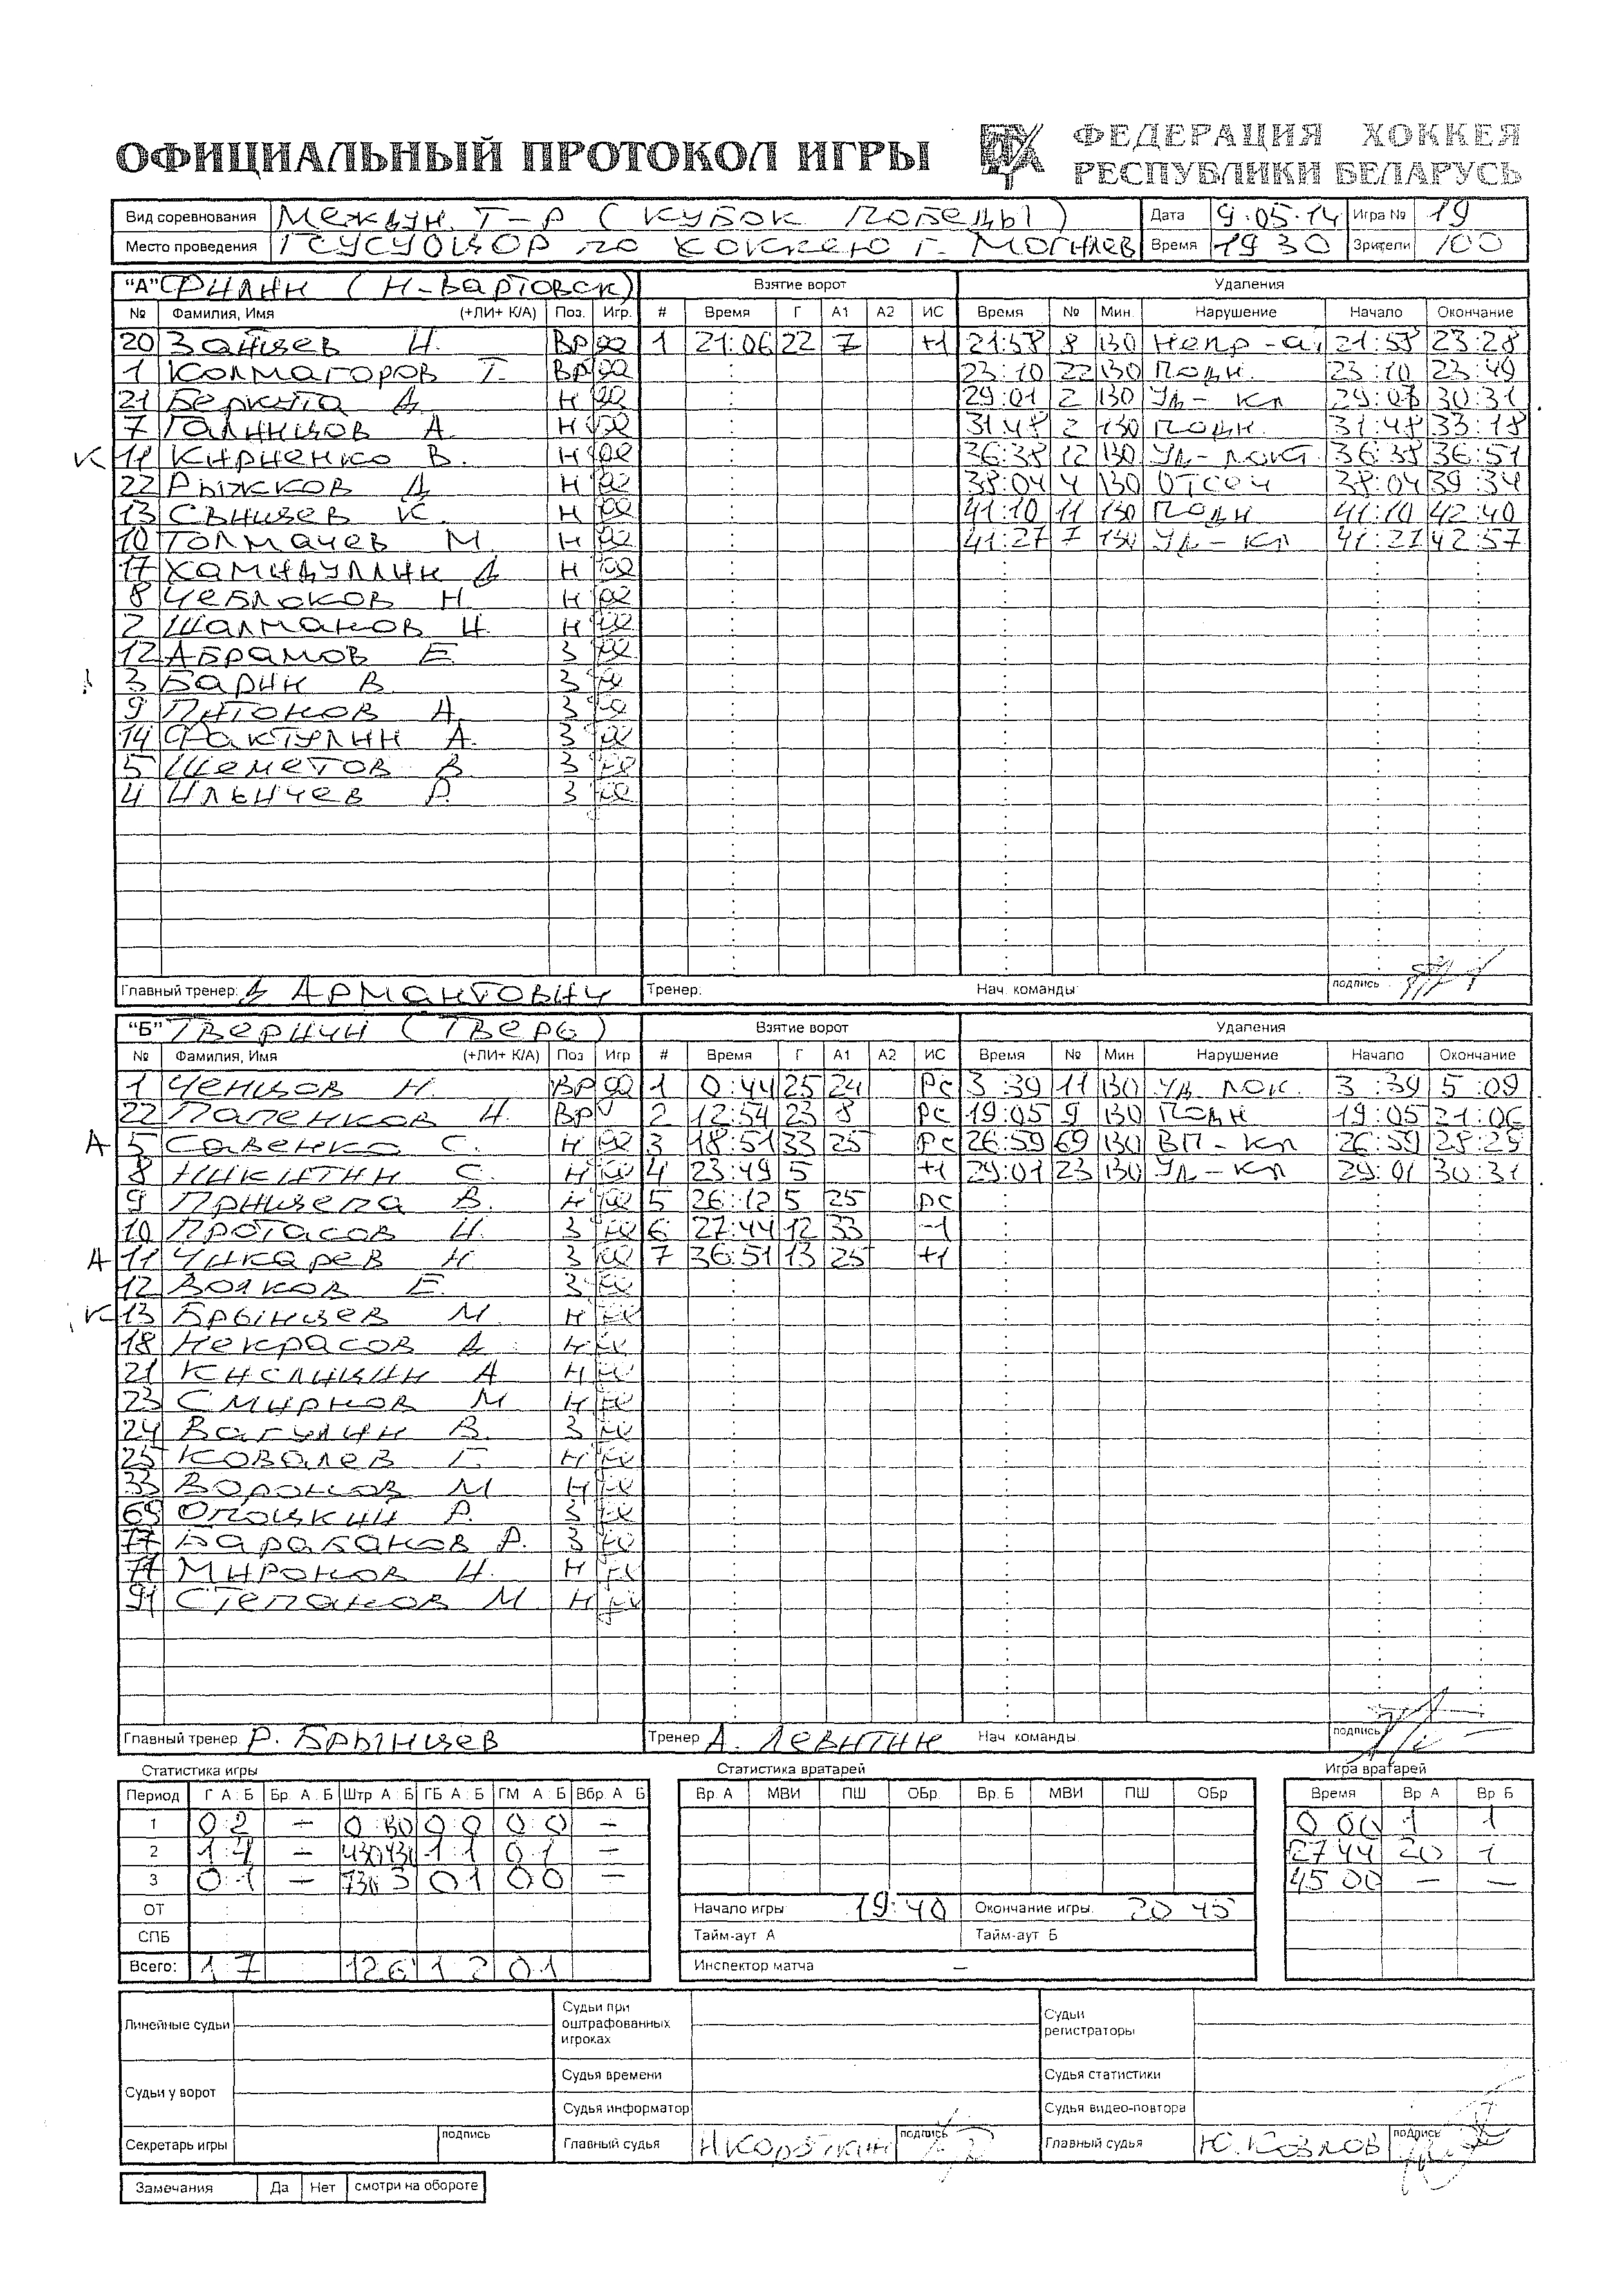 ОФИЦИАЛЬНЫЙ ПРОТОКОЛ ИГРЫ
ФЕДЕРАЦИЯ ХОККЕЯ
РЕСПУБЛИКИ БЕЛАРУСЬ
Вид соревнования Междун. Т-р (Кубок Победы) Дата 9.05.14 Игра № 19
Место проведения ГСУСУ по хоккею г. Могилев Время 19 30 Зрители 100
"А" Филин (Н-Вартовск) Взятие ворот Удаления
№ Фамилия, Имя (+ЛИ+ К/А) Поз. Игр. # Время Г А1 А2 ИС Время № Мин. Нарушение Начало Окончание
20 Зайцев И. Вр 1 21:06 22 7 +1 21:58 8 130 Непр-ат 21:58 23:28
1 Колмагоров Т. Вр 23:10 22 130 Подн. 23:10 23:49
21 Беркута Д Н 29:01 2 130 Уд-кл 29:01 30:31
7 Галиицов А. Н 31:48 2 130 Подн. 31:48 33:18
К 11 Кириенко В. Н 36:38 12 130 Уд-локт. 36:38 36:51
22 Рыжков Д Н 38:04 4 130 Отсеч 38:04 39:34
13 Свинцев К. Н 41:10 11 130 Подн 41:10 42:40
10 Толмачев М. Н 41:27 7 130 Уд-кл 41:27 42:57
17 Хамидуллин Д Н
8 Чеблоков Н. Н
2 Шалманов И. Н
12 Абрамов Е З
3 Барин В. З
9 Питонов А. З
14 Фактулин А. З
5 Шеметов В. З
4 Ильичев Р. З
Главный тренер: Д Армантович Тренер: Нач. команды: подпись
"Б" Тверичи (Тверь) Взятие ворот Удаления
№ Фамилия, Имя (+ЛИ+ К/А) Поз Игр # Время Г А1 А2 ИС Время № Мин Нарушение Начало Окончание
1 Ченцов Н. Вр 1 0:44 25 24 РС 3:39 11 130 Уд лок. 3:39 5:09
22 Папенков И. Вр 2 12:54 23 8 РС 19:05 9 130 Подн 19:05 21:06
А 5 Савенко С. Н 3 18:51 33 25 РС 26:59 69 130 ВП-кл 26:59 28:29
8 Никитин С. Н 4 23:49 5 +1 29:01 23 130 Уд-кл 29:01 30:31
9 Прищепа В. Н 5 26:12 5 25 РС
10 Протасов И. З 6 27:44 12 33 -1
А 11 Чикарев Н. З 7 36:51 13 25 +1
12 Волков Е. З
К 13 Брынцев М. Н
18 Некрасов Д Н
21 Кислицин А Н
23 Смирнов М Н
24 Вагулин В. З
25 Ковалев Г. Н
33 Воронов М Н
69 Опоцкин Р. З
77 Барабанов Р. З
71 Миронов И. Н
91 Степанов М. Н
Главный тренер Р. Брынцев Тренер А. Левитин Нач. команды подпись
Статистика игры Статистика вратарей Игра вратарей
Период Г А:Б Бр. А:Б Штр А:Б ГБ А:Б ГМ А:Б Вбр. А Б Вр. А МВИ ПШ ОБр. Вр. Б МВИ ПШ ОБр Время Вр А Вр Б
1 0:2 — 0:0 0:0 — 0 00 1 1
2 1:4 — 1:1 0:1 — 27 44 20 1
3 0:1 — 0 1 0 0 — 45 00 — —
ОТ Начало игры 19:40 Окончание игры 20 45
СПБ Тайм-аут А Тайм-аут Б
Всего: 1 7 12 6 1 2 0 1 Инспектор матча —
Линейные судьи Судьи при оштрафованных игроках Судьи регистраторы
Судьи у ворот Судья времени Судья статистики
Судья информатор Судья видео-повтора
Секретарь игры подпись Главный судья И Короткин подпись Главный судья Ю. Козлов подпись
Замечания Да Нет смотри на обороте